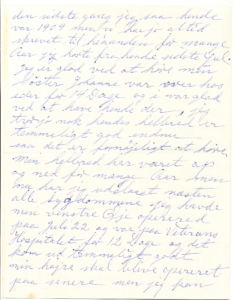 den sidste gang jeg saa hende
var 1909 men vi har jo altid
skrevet til hinanden for mange
Aar jeg hørte fra hende sidste Jul
Jeg er glad ved at høre men
Søster Johanna var over hos
over 14 Dage og i var glad
ved at have hende der, jeg
tror nok hendes helbred er
temmeligt god endnu
saa det er fornøjeligt at høre
Men helbred har været op
og ned for mange Aar
jeg har udstaaet næsten
alle sygdommene jeg havde
men venstre Øje opereret
paa Juli 22 og var paa Veterans
Hospitalet for 12 Dage og det
kom ud temmeligt godt
min højre skal blive opereret
paa senere men jeg kan